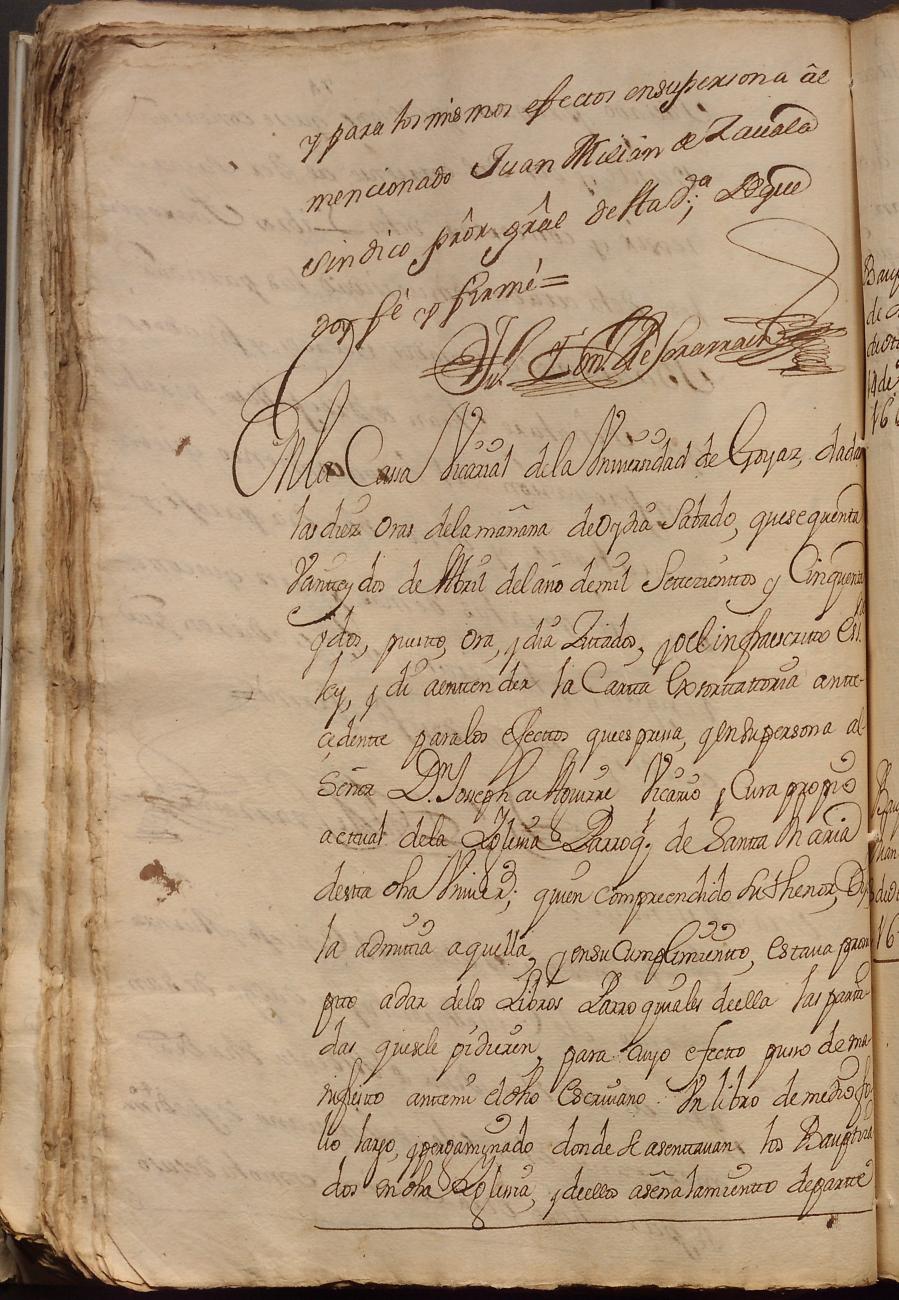 y para los mismos efectos en su persona âl
mencionado Juan Milian de Zauala
sindico prôr grâl de sta d.ª Deque
doy fé y firmé =
En la Cassa Vicarial dela Vniversidad de Goyaz, dadas
las diez oras dela mañana de oy dia Sabado, que se quenta
Vainte y dos de Abril del año de mil Settezientos y Cinquenta
y dos, puesto, ora, y dia Zitados, yo el infraescrito Es.no
ley, y di aentender la Cartta Exorttattoria antte-
cedentte para los efecttos que espresa, y en su persona al
Señor D.n Joseph de Aguirre Vicario y Cura propio
acttual de la Yglesia Parroq.l de Santta Maria
destta dha Vniver.d; quien comprendido su thenor, Dijo
la admittia aquella, y en su Cumplimientto, estava prom
pto adar delos Libros Parroquiales de ella las parti-
das que sele pidieren, para cuyo efectto puso de ma-
nifiesto anttemi el dho Escriuano Vn libro de medio fo-
lio largo, y pergaminado donde se asenttauan los Bauptiza
dos en dha Yglesia, y de ellos aseñalamientto de partte